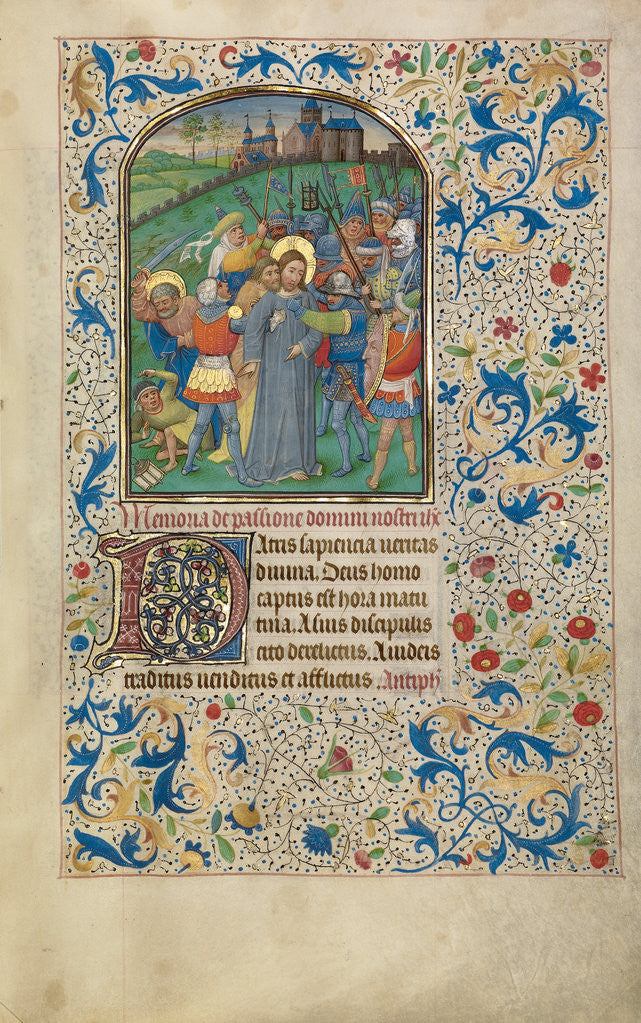 Memoria de passione domini nostri ihc
Patris sapiencia ueritas
diuina. Deus homo
captus est hora matu
tina. A suis discipulis
cito derelictus. A iudeis
traditus uenditus et afflictus. Antiph